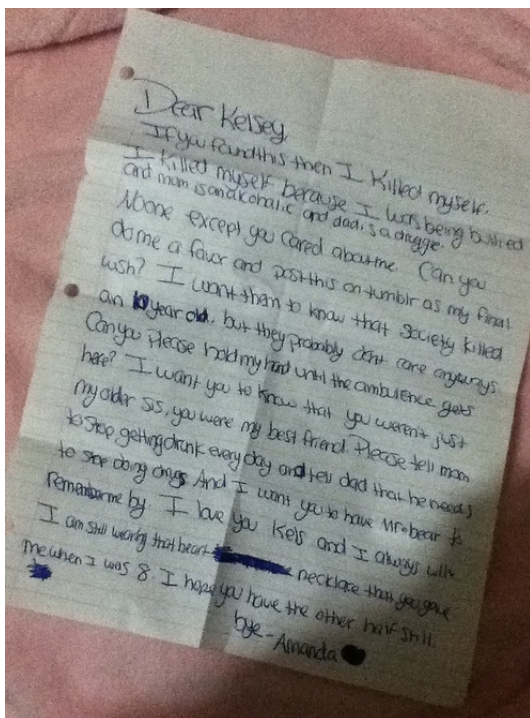 Dear Kelsey,
If you found this then I killed myself.
I killed myself because I was being bullied
and mom is an alcoholic and dad is a druggie.
Noone except you cared about me. Can you
do me a favor and post this on tumblr as my final
wish? I want them to know that society killed
an 10 year old. but they probably dont care anyways
Can you please hold my hand until the ambulence gets
here? I want you to know that you weren't just
my older sis, you were my best friend. Please tell mom
to stop getting drunk every day and tell dad that he needs
to stop doing drugs And I want you to have Mr. bear to
remember me by I love you Kels and I always will.
I am still wearing that heart necklace that you gave
me when I was 8. I hope you have the other half still.
bye - Amanda